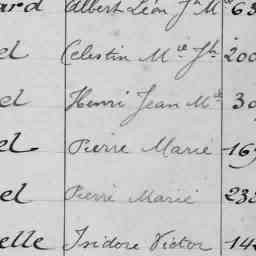 ard Albert Léon Jn Mie 63
el Célestin Mie Jh 200
el Henri Jean Mie 30
el Pierre Marie 169
el Pierre Marie 233
elle Isidore Victor 142